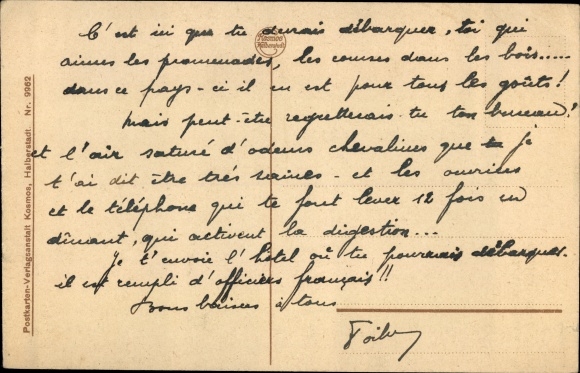 C'est ici que tu devrais débarquer, toi qui
aimes les promenades, les courses dans les bois.....
dans ce pays-ci il en est pour tous les goûts!
mais peut-être regretterais-tu ton bureau!
et l'air saturé d'odeurs chevalines que je
t'ai dit être très saines - et les ouvrières
et le téléphone qui te font lever 12 fois en
dînant, qui activent la digestion...
Je t'envoie l'hôtel où tu pourrais débarquer.
il est rempli d'officiers français!!
Bons baisers à tous
Kosmos
Halberstadt
Postkarten-Verlagsanstalt Kosmos, Halberstadt. Nr. 9962